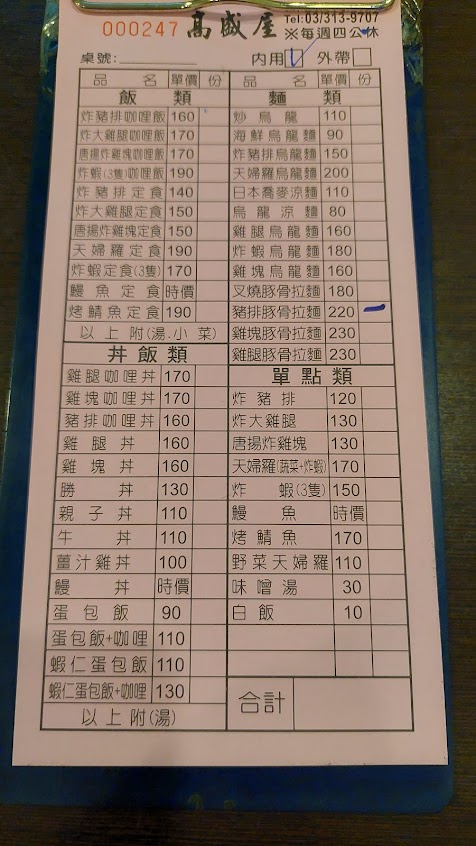 000247 高盛屋 Tel:03/313-9707
※每週四公休
桌號: 內用 外帶
品名 單價 份
飯類
炸豬排咖哩飯 160
炸大雞腿咖哩飯 170
唐揚炸雞塊咖哩飯 170
炸蝦(3隻)咖哩飯 190
炸豬排定食 140
炸大雞腿定食 150
唐揚炸雞塊定食 150
天婦羅定食 190
炸蝦定食(3隻) 170
鰻魚定食 時價
烤鯖魚定食 190
以上附(湯.小菜)
丼飯類
雞腿咖哩丼 170
雞塊咖哩丼 170
豬排咖哩丼 160
雞腿丼 160
雞塊丼 160
勝丼 130
親子丼 110
牛丼 110
薑汁雞丼 100
鰻丼 時價
蛋包飯 90
蛋包飯+咖哩 110
蝦仁蛋包飯 110
蝦仁蛋包飯+咖哩 130
以上附(湯)
品名 單價 份
麵類
炒烏龍 110
海鮮烏龍麵 90
炸豬排烏龍麵 150
天婦羅烏龍麵 200
日本喬麥涼麵 110
烏龍涼麵 80
雞腿烏龍麵 160
炸蝦烏龍麵 180
雞塊烏龍麵 160
叉燒豚骨拉麵 180
豬排豚骨拉麵 220
雞塊豚骨拉麵 230
雞腿豚骨拉麵 230
單點類
炸豬排 120
炸大雞腿 130
唐揚炸雞塊 130
天婦羅(蔬菜+炸蝦) 170
炸蝦(3隻) 150
鰻魚 時價
烤鯖魚 170
野菜天婦羅 110
味噌湯 30
白飯 10
合計